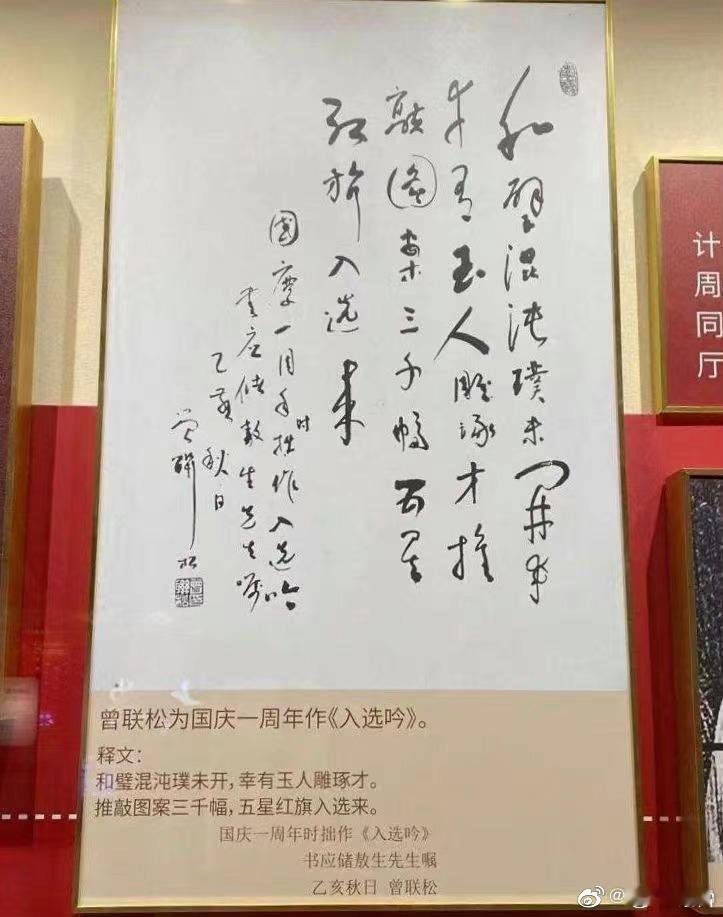 和璧混沌璞未開幸
幸有玉人雕琢才推
敲圖案三千幅五星
红旂入选来
國慶一周年时拙作入选吟
书应储敖生先生嘱
乙亥秋日
曾联松
计周同厅
曾联松为国庆一周年作《入选吟》。
释文：
和璧混沌璞未开，幸有玉人雕琢才。
推敲图案三千幅，五星红旗入选来。
国庆一周年时拙作《入选吟》
书应储敖生先生嘱
乙亥秋日 曾联松